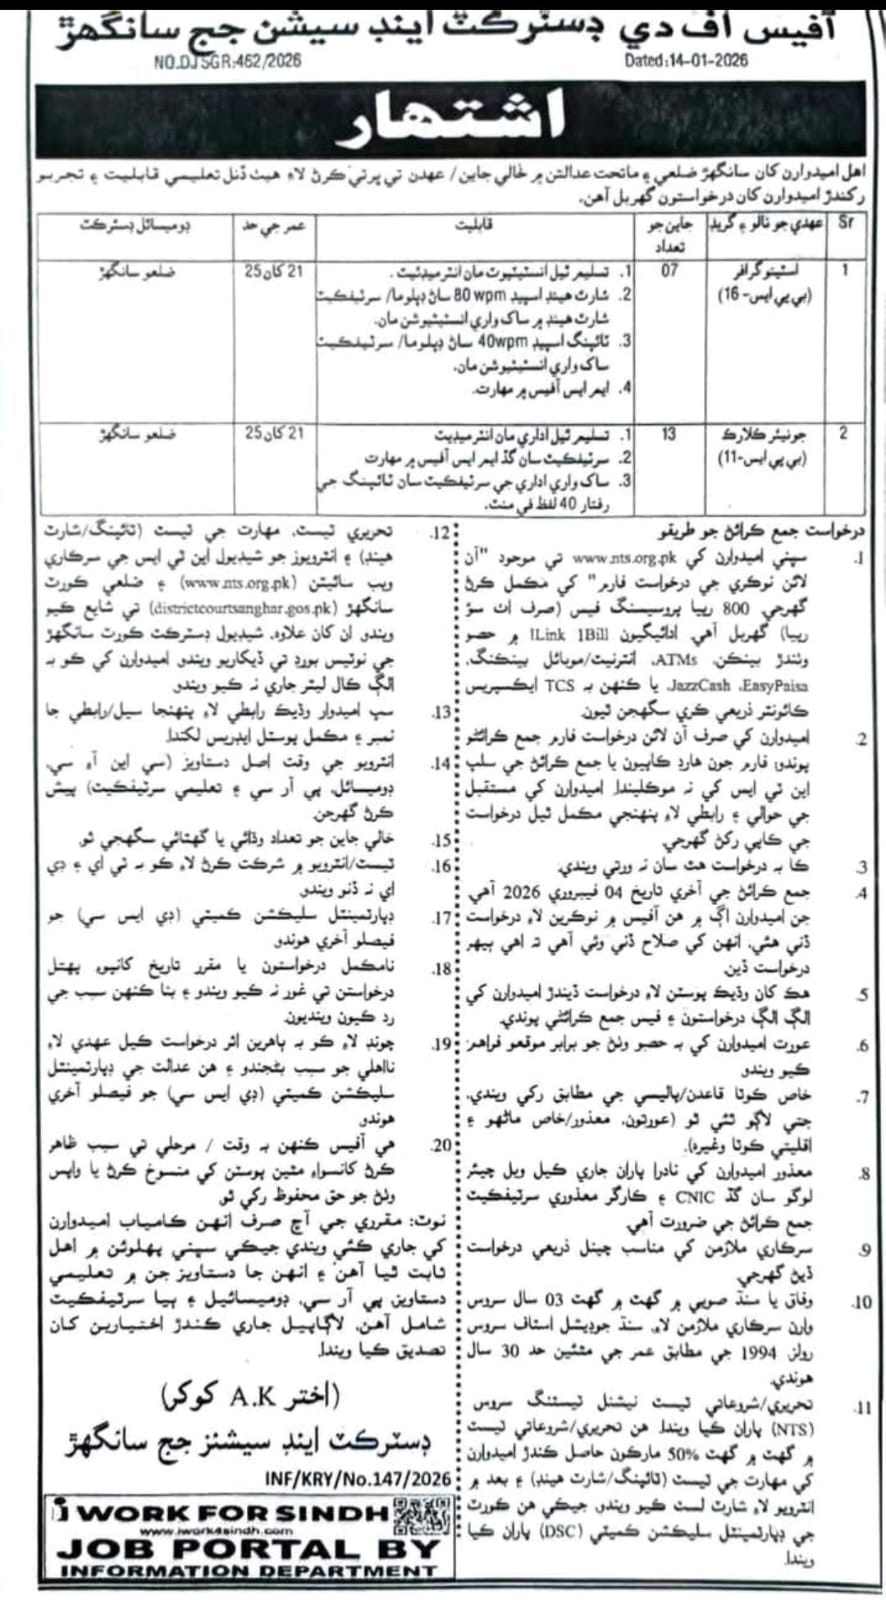 آفيس آف دي ڊسٽرڪٽ اينڊ سيشن جج سانگھڙ
NO.DJSGR:462/2026
Dated:14-01-2026
اشتھار
اهل اميدوارن کان سانگھڙ ضلعي ۽ ماتحت عدالتن ۾ خالي جاين/ عهدن تي ڀرتي ڪرڻ لاءِ هيٺ ڏنل تعليمي قابليت ۽ تجربو
رکندڙ اميدوارن کان درخواستون گهربل آهن.
Sr
عهدي جو نالو ۽ گريڊ
جاين جو تعداد
قابليت
عمر جي حد
ڊوميسائل ڊسٽرڪٽ
1
اسٽينوگرافر
(بي پي ايس- 16)
07
1. تسليم ٿيل انسٽيٽيوٽ مان انٽرميڊئيٽ.
2. شارٽ هينڊ اسپيڊ 80 wpm ساڻ ڊپلوما/ سرٽيفڪيٽ
شارٽ هينڊ ۾ ساک واري انسٽيٽيوشن مان.
3. ٽائپنگ اسپيڊ 40wpm ساڻ ڊپلوما/ سرٽيفڪيٽ
ساک واري انسٽيٽيوشن مان.
4. ايم ايس آفيس ۾ مهارت.
21 کان 25
ضلعو سانگھڙ
2
جونيئر ڪلارڪ
(بي پي ايس-11)
13
1. تسليم ٿيل اداري مان انٽرميڊيٽ
2. سرٽيفڪيٽ سان گڏ ايم ايس آفيس ۾ مهارت
3. ساک واري اداري جي سرٽيفڪيٽ سان ٽائپنگ جي
رفتار 40 لفظ في منٽ.
21 کان 25
ضلعو سانگھڙ
درخواست جمع ڪرائڻ جو طريقو
1. سڀني اميدوارن کي www.nts.org.pk تي موجود "آن
لائن نوڪري جي درخواست فارم" کي مڪمل ڪرڻ
گهرجي 800 رپيا پروسيسنگ فيس (صرف اٺ سؤ
رپيا) گهربل آهي ادائيگيون 1Link 1Bill ۾ حصو
وٺندڙ بينڪن، ATMs، انٽرنيٽ/موبائل بينڪنگ،
JazzCash ،EasyPaisa، يا ڪنهن بہ TCS ايڪسپريس
ڪائونٽر ذريعي ڪري سگهجن ٿيون.
2. اميدوارن کي صرف آن لائن درخواست فارم جمع ڪرائڻو
پوندو: فارم جون هارڊ ڪاپيون يا جمع ڪرائڻ جي سلپ
اين ٽي ايس کي نہ موڪليندا. اميدوارن کي مستقبل
جي حوالي ۽ رابطي لاءِ پنهنجي مڪمل ٿيل درخواست
جي ڪاپي رکڻ گهرجي.
3. ڪا بہ درخواست هٿ سان نہ ورتي ويندي.
4. جمع ڪرائڻ جي آخري تاريخ 04 فيبروري 2026 آهي
جن اميدوارن اڳ ۾ هن آفيس ۾ نوڪرين لاءِ درخواست
ڏني هئي، انهن کي صلاح ڏني وئي آهي تہ اهي ٻيهر
درخواست ڏين.
5. هڪ کان وڌيڪ پوسٽن لاءِ درخواست ڏيندڙ اميدوارن کي
الڳ الڳ درخواستون ۽ فيس جمع ڪرائڻي پوندي.
6. عورت اميدوارن کي بہ حصو وٺڻ جو برابر موقعو فراهم
ڪيو ويندو
7. خاص ڪوٽا قاعدن/پاليسي جي مطابق رکي ويندي،
جتي لاڳو ٿئي ٿو (عورتون، معذور/خاص ماڻهو ۽
اقليتي ڪوٽا وغيره).
8. معذور اميدوارن کي نادرا پاران جاري ڪيل ويل چيئر
لوگو سان گڏ CNIC ۽ ڪارگر معذوري سرٽيفڪيٽ
جمع ڪرائڻ جي ضرورت آهي.
9. سرڪاري ملازمن کي مناسب چينل ذريعي درخواست
ڏيڻ گهرجي.
10. وفاق يا سنڌ صوبي ۾ گهٽ ۾ گهٽ 03 سال سروس
وارن سرڪاري ملازمن لاءِ، سنڌ جوڊيشل اسٽاف سروس
رولز 1994 جي مطابق عمر جي مٿئين حد 30 سال
هوندي.
11. تحريري/شروعاتي ٽيسٽ نيشنل ٽيسٽنگ سروس
(NTS) پاران ڪيا ويندا. هن تحريري/شروعاتي ٽيسٽ
۾ گهٽ ۾ گهٽ 50% مارڪون حاصل ڪندڙ اميدوارن
کي مهارت جي ٽيسٽ (ٽائپنگ/شارٽ هينڊ) ۽ بعد ۾
انٽرويو لاءِ شارٽ لسٽ ڪيو ويندو، جيڪي هن ڪورٽ
جي ڊپارٽمينٽل سليڪشن ڪميٽي (DSC) پاران ڪيا
ويندا.
12. تحريري ٽيسٽ، مهارت جي ٽيسٽ (ٽائپنگ/شارٽ
هينڊ) ۽ انٽرويوز جو شيڊيول اين ٽي ايس جي سرڪاري
ويب سائيٽن (www.nts.org.pk) ۽ ضلعي ڪورٽ
سانگھڙ (districtcourtsanghar.gos.pk) تي شايع ڪيو
ويندو ان کان علاوه، شيڊيول ڊسٽرڪٽ ڪورٽ سانگھڙ
جي نوٽيس بورڊ تي ڏيکاريو ويندو اميدوارن کي ڪو بہ
الڳ ڪال ليٽر جاري نہ ڪيو ويندو
13. سڀ اميدوار وڌيڪ رابطي لاءِ پنهنجا سيل/رابطي جا
نمبر ۽ مڪمل پوسٽل ايڊريس لکندا.
14. انٽرويو جي وقت اصل دستاويز (سي اين آءِ سي،
ڊوميسائل، پي آر سي ۽ تعليمي سرٽيفڪيٽ) پيش
ڪرڻ گهرجن.
15. خالي جاين جو تعداد وڌائي يا گهٽائي سگهجي ٿو.
16. ٽيسٽ/انٽرويو ۾ شرڪت ڪرڻ لاءِ ڪو بہ ٽي اي ۽ ڊي
اي نہ ڏنو ويندو
17. ڊپارٽمينٽل سليڪشن ڪميٽي (ڊي ايس سي) جو
فيصلو آخري هوندو
18. نامڪمل درخواستون يا مقرر تاريخ کانپوءِ پهتل
درخواستن تي غور نہ ڪيو ويندو ۽ بنا ڪنهن سبب جي
رد ڪيون وينديون.
19. چونڊ لاءِ ڪو بہ ٻاهرين اثر درخواست ڪيل عهدي لاءِ
نااهلي جو سبب بڻجندو ۽ هن عدالت جي ڊپارٽمينٽل
سليڪشن ڪميٽي (ڊي ايس سي) جو فيصلو آخري
هوندو
20. هي آفيس ڪنهن بہ وقت / مرحلي تي سبب ظاهر
ڪرڻ کانسواءِ مٿين پوسٽن کي منسوخ ڪرڻ يا واپس
وٺڻ جو حق محفوظ رکي ٿو
نوٽ: مقرري جي آڇ صرف انهن ڪامياب اميدوارن
کي جاري ڪئي ويندي جيڪي سڀني پهلوئن ۾ اهل
ثابت ٿيا آهن ۽ انهن جا دستاويز جن ۾ تعليمي
دستاويز، پي آر سي، ڊوميسائيل ۽ ٻيا سرٽيفڪيٽ
شامل آهن، لاڳاپيل جاري ڪندڙ اختيارين کان
تصديق ڪيا ويندا.
(اختر A.K کوکر)
ڊسٽرڪٽ اينڊ سيشنز جج سانگھڙ
INF/KRY/No.147/2026
i WORK FOR SINDH
www.iwork4sindh.com
JOB PORTAL BY
INFORMATION DEPARTMENT